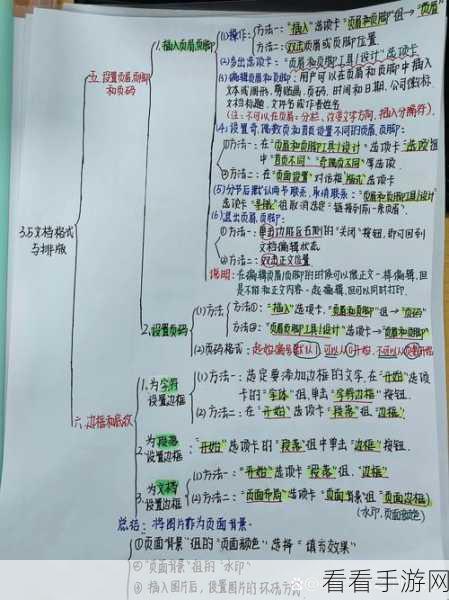 3.5文档格式与排版
五.设置页眉,页脚和页码
1.插入页眉,页脚
(1)操作:方法一:"插入"选项卡"页眉和页脚"组→"页眉"
方法二:双击页眉或页脚位置
(2)会出选项卡:"页眉和页脚工具|设计"选项卡
(3)编辑页眉和页脚:用户可以在页眉和页脚中插入
文本或图形,剪贴画,页码,时间和日期,公司徽标
文档标题,文件名或作者姓名
(注:不可以在页眉:分栏、改变文字方向,插入分隔符)
(4)设置奇、偶数页和首页设置不同的页眉,页脚:
①方法一:在"页眉和页脚工具|设计"选项卡"选项"组
中"首页不同""奇偶页不同"等选项
②方法二:在"页面设置"对话框,版式选项卡
(5)分节后默认两节联系,取消联系:"页眉和页脚工具|设计"
选项卡"导航"组取消选定"链接到前一条页眉"
(6)退出页眉,页脚:
①方法一:单击功能区右侧的"关闭"按钮,即可回到
文档编辑状态
②方法二:双击正文位置
说明:在编辑页眉/页脚的时候可以像正文一样编辑,但
是不能和正文内容一起编辑,但可以同时打印.
2.设置页码
(1)方法
方法①:"插入"选项卡,"页眉和页脚"组→"页码"
方法②:"页眉页脚工具|设计"选项卡→"页眉和页脚"
(2)页码格式:起始编号默认1,可以从0开始,不可以从负数开始
六.边框和底纹
1.为字符设置边框
(1)方法一:选定要添加边框的文字,在"开始"选项
卡的"字体"组,单击"字符边框"按钮.
(2)方法二:在"开始"选项卡"段落"组,"边框"
2.为段落设置边框:"开始"选项卡的"段落"组中单击"边框"按钮.
3.为文档设置边框
(1)方法一:"开始"选项卡"段落"组,"边框"
(2)方法二:"页面布局"选项卡"页面背景"组"页面边框"
(水印,页面颜色)
总结:将图片作为页面背景.
①"页面背景"组的"页面颜色"选择"填充效果"
②"页面背景"组的"水印"
③插入图片后,设置图片的环绕方式
看看手游网